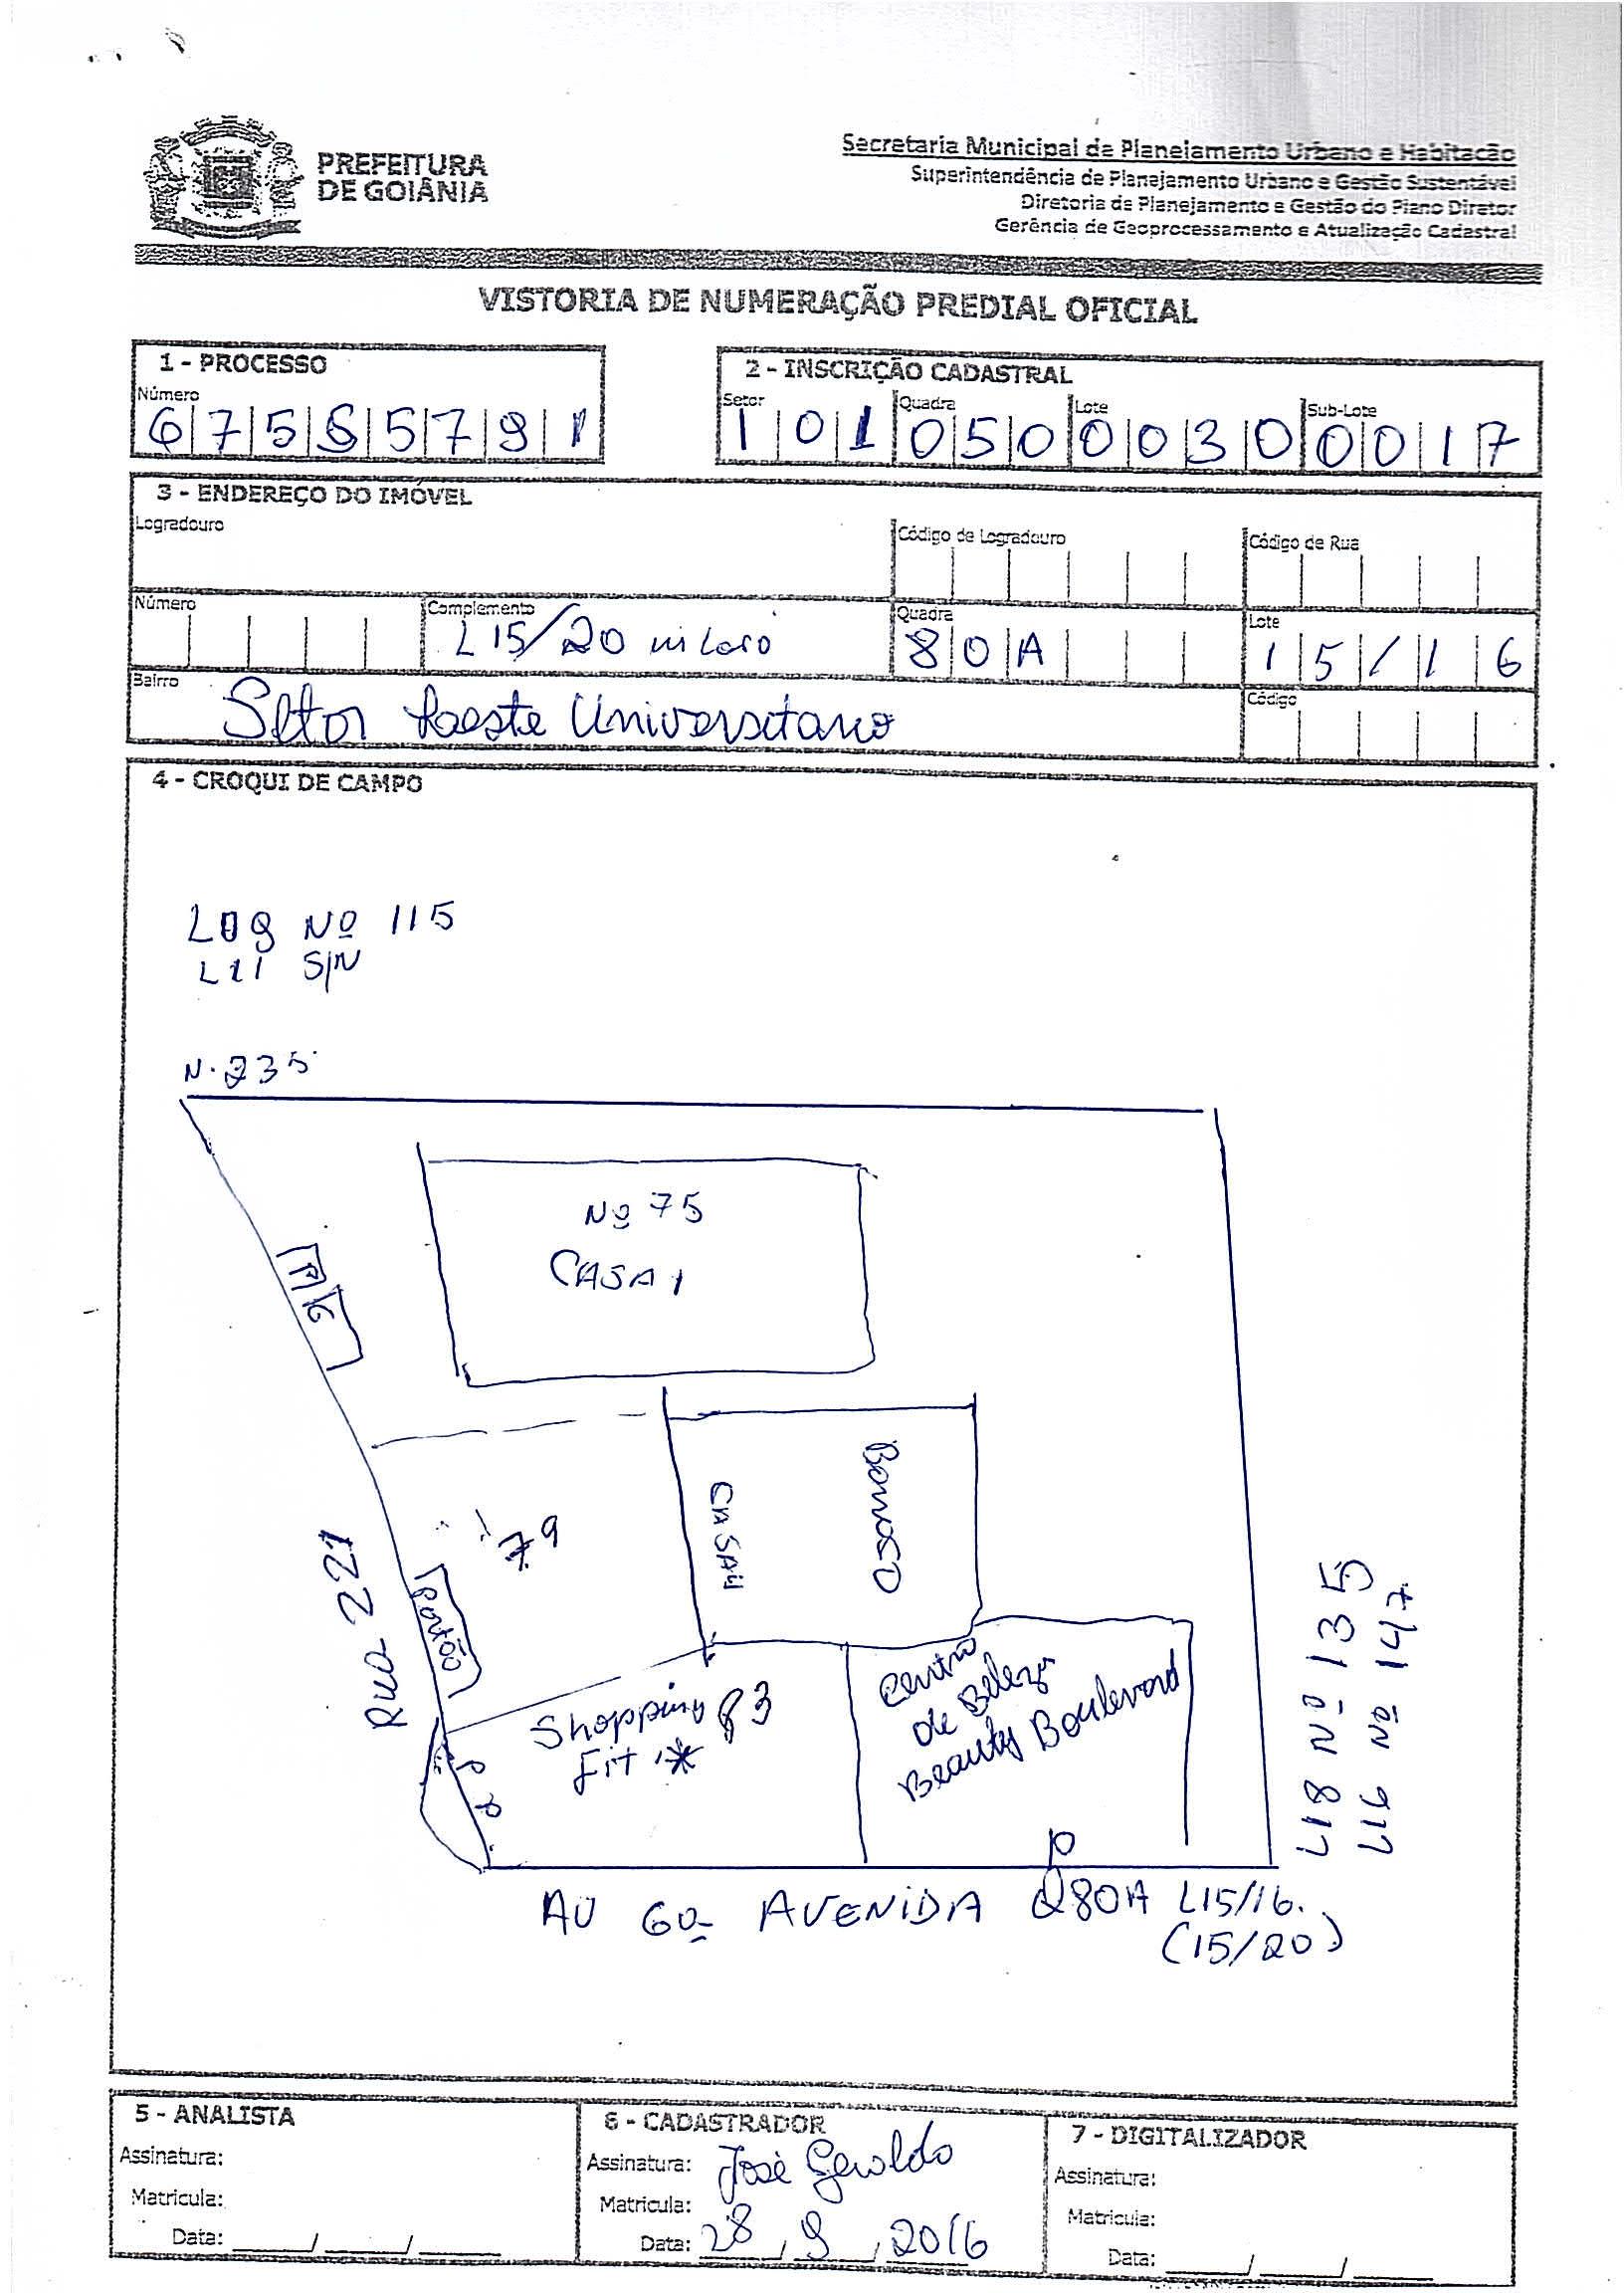 PREFEITURA
DE GOIÂNIA
Secretaria Municipal de Planejamento Urbano e Habitação
Superintendência de Planejamento Urbano e Gestão Sustentável
Diretoria de Planejamento e Gestão do Plano Diretor
Gerência de Geoprocessamento e Atualização Cadastral
VISTORIA DE NUMERAÇÃO PREDIAL OFICIAL
1 - PROCESSO
Número
2 - INSCRIÇÃO CADASTRAL
Setor Quadra Lote Sub-Lote
1 0 1 0 5 0 0 0 3 0 0 0 1 7
3 - ENDEREÇO DO IMÓVEL
Logradouro Código de Logradouro Código de Rua
Número Complemento Quadra Lote
L 15/20 80A 15/16
Bairro Código
Setor Universitario
4 - CROQUI DE CAMPO
L09 Nº 115
L21 S/N
N. 235
Nº 75
CASA 1
PG
CASA 4
79
Rua 221
Portão
Shopping 83
Fit *
Centro
de Beleza
Beauty Boulevard
L18 Nº 135
L16 Nº 147
AV 6ª AVENIDA Q80A L15/16.
(15/20)
5 - ANALISTA
Assinatura:
Matrícula:
Data: ____/____/____
6 - CADASTRADOR
Assinatura: José Geraldo
Matrícula:
Data: 28/9/2016
7 - DIGITALIZADOR
Assinatura:
Matrícula:
Data: ____/____/____